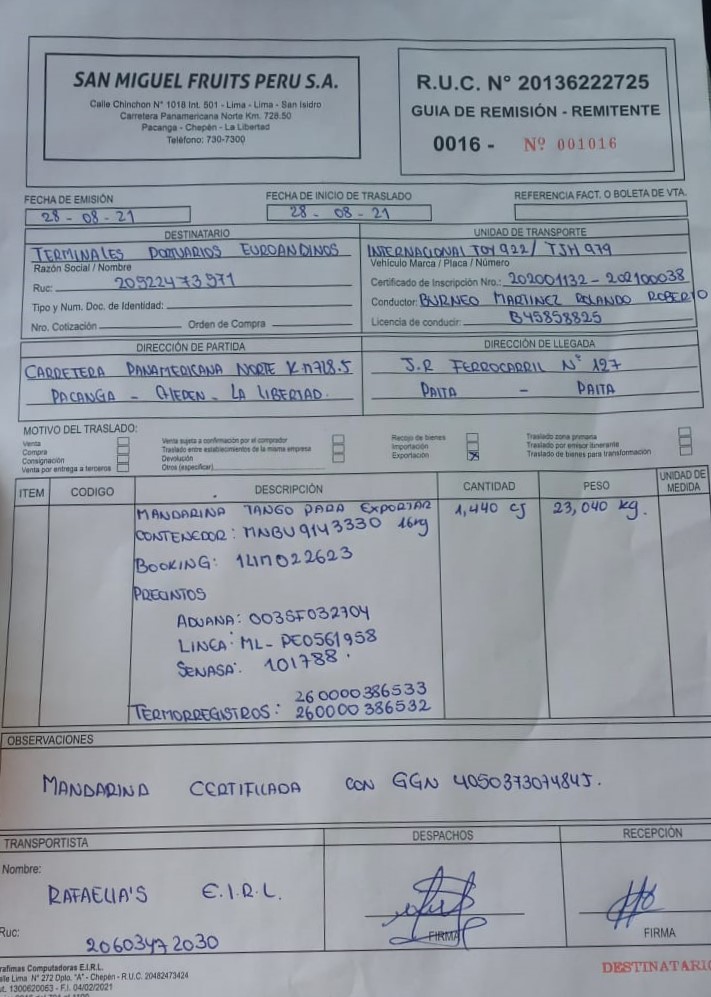 SAN MIGUEL FRUITS PERU S.A.
Calle Chinchon N° 1018 Int. 501 - Lima - Lima - San Isidro
Carretera Panamericana Norte Km. 728.50
Pacanga - Chepén - La Libertad
Teléfono: 730-7300
R.U.C. N° 20136222725
GUIA DE REMISIÓN - REMITENTE
0016 - Nº 001016
FECHA DE EMISIÓN
28 - 08 - 21
FECHA DE INICIO DE TRASLADO
28 - 08 - 21
REFERENCIA FACT. O BOLETA DE VTA.
DESTINATARIO
TERMINALES PORTUARIOS EUROANDINOS
Razón Social / Nombre
Ruc: 20522473571
Tipo y Num. Doc. de Identidad:
Nro. Cotización Orden de Compra
UNIDAD DE TRANSPORTE
INTERNACIONAL TOY 922 / TJH 979
Vehículo Marca / Placa / Número
Certificado de Inscripción Nro.: 202001132 - 202100038
Conductor: BURNEO MARTINEZ ROLANDO ROBERTO
Licencia de conducir: B45858825
DIRECCIÓN DE PARTIDA
CARRETERA PANAMERICANA NORTE Km 718.5
PACANGA - CHEPEN - LA LIBERTAD.
DIRECCIÓN DE LLEGADA
J.R FERROCARRIL N° 127
PAITA - PAITA
MOTIVO DEL TRASLADO:
Venta
Compra
Consignación
Venta por entrega a terceros
Venta sujeta a confirmación por el comprador
Traslado entre establecimientos de la misma empresa
Devolución
Otros (especificar)
Recojo de bienes
Importación
Exportación X
Traslado zona primaria
Traslado por emisor itinerante
Traslado de bienes para transformación
ITEM CODIGO DESCRIPCIÓN CANTIDAD PESO UNIDAD DE MEDIDA
MANDARINA TANGO PARA EXPORTAR 1,440 cj 23,040 kg.
CONTENEDOR: MNBU9143330 16kg
BOOKING: 1LIM022623
PRECINTOS
ADUANA: 003SF032704
LINEA: ML-PE0561958
SENASA: 101788.
260000386533
TERMORREGISTROS: 260000386532
OBSERVACIONES
MANDARINA CERTIFICADA CON GGN 4050373074845.
TRANSPORTISTA
Nombre:
RAFAELIA'S E.I.R.L.
Ruc:
20603472030
DESPACHOS
FIRMA
RECEPCIÓN
FIRMA
Computadoras E.I.R.L.
Lima N° 272 Dpto. "A" - Chepén - R.U.C. 20482473424
1300620063 - F.I. 04/02/2021
DESTINATARIO